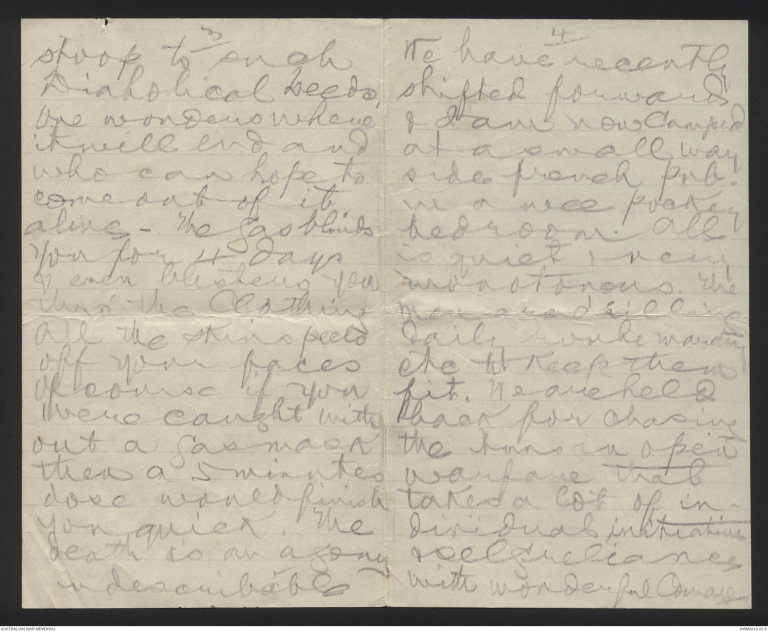 3
stoop to such
Diabolical deeds,
one wonders where
it will end and
who can hope to
come out of it
alive - The gas blinds
you for 4 days
& even blisters you
thro' the Clothing
all the skins peels
off your faces
of course if you
were caught with
out a gas mask
then a 5 minutes
dose would finish
you quick. The
death is an agony
indescribable
4
We have recently
shifted forwards
& I am now Camped
at a small way
side french pub.
in a wee pokey
bedroom. All
is quiet & very
monotonous. The
men are drilling
daily route marching
etc to keep them
fit. We are held
back for chasing
the huns in open
warfare that
takes a lot of in-
dividual initiative
& self reliance
with wonderful Courage
AUSTRALIAN WAR MEMORIAL